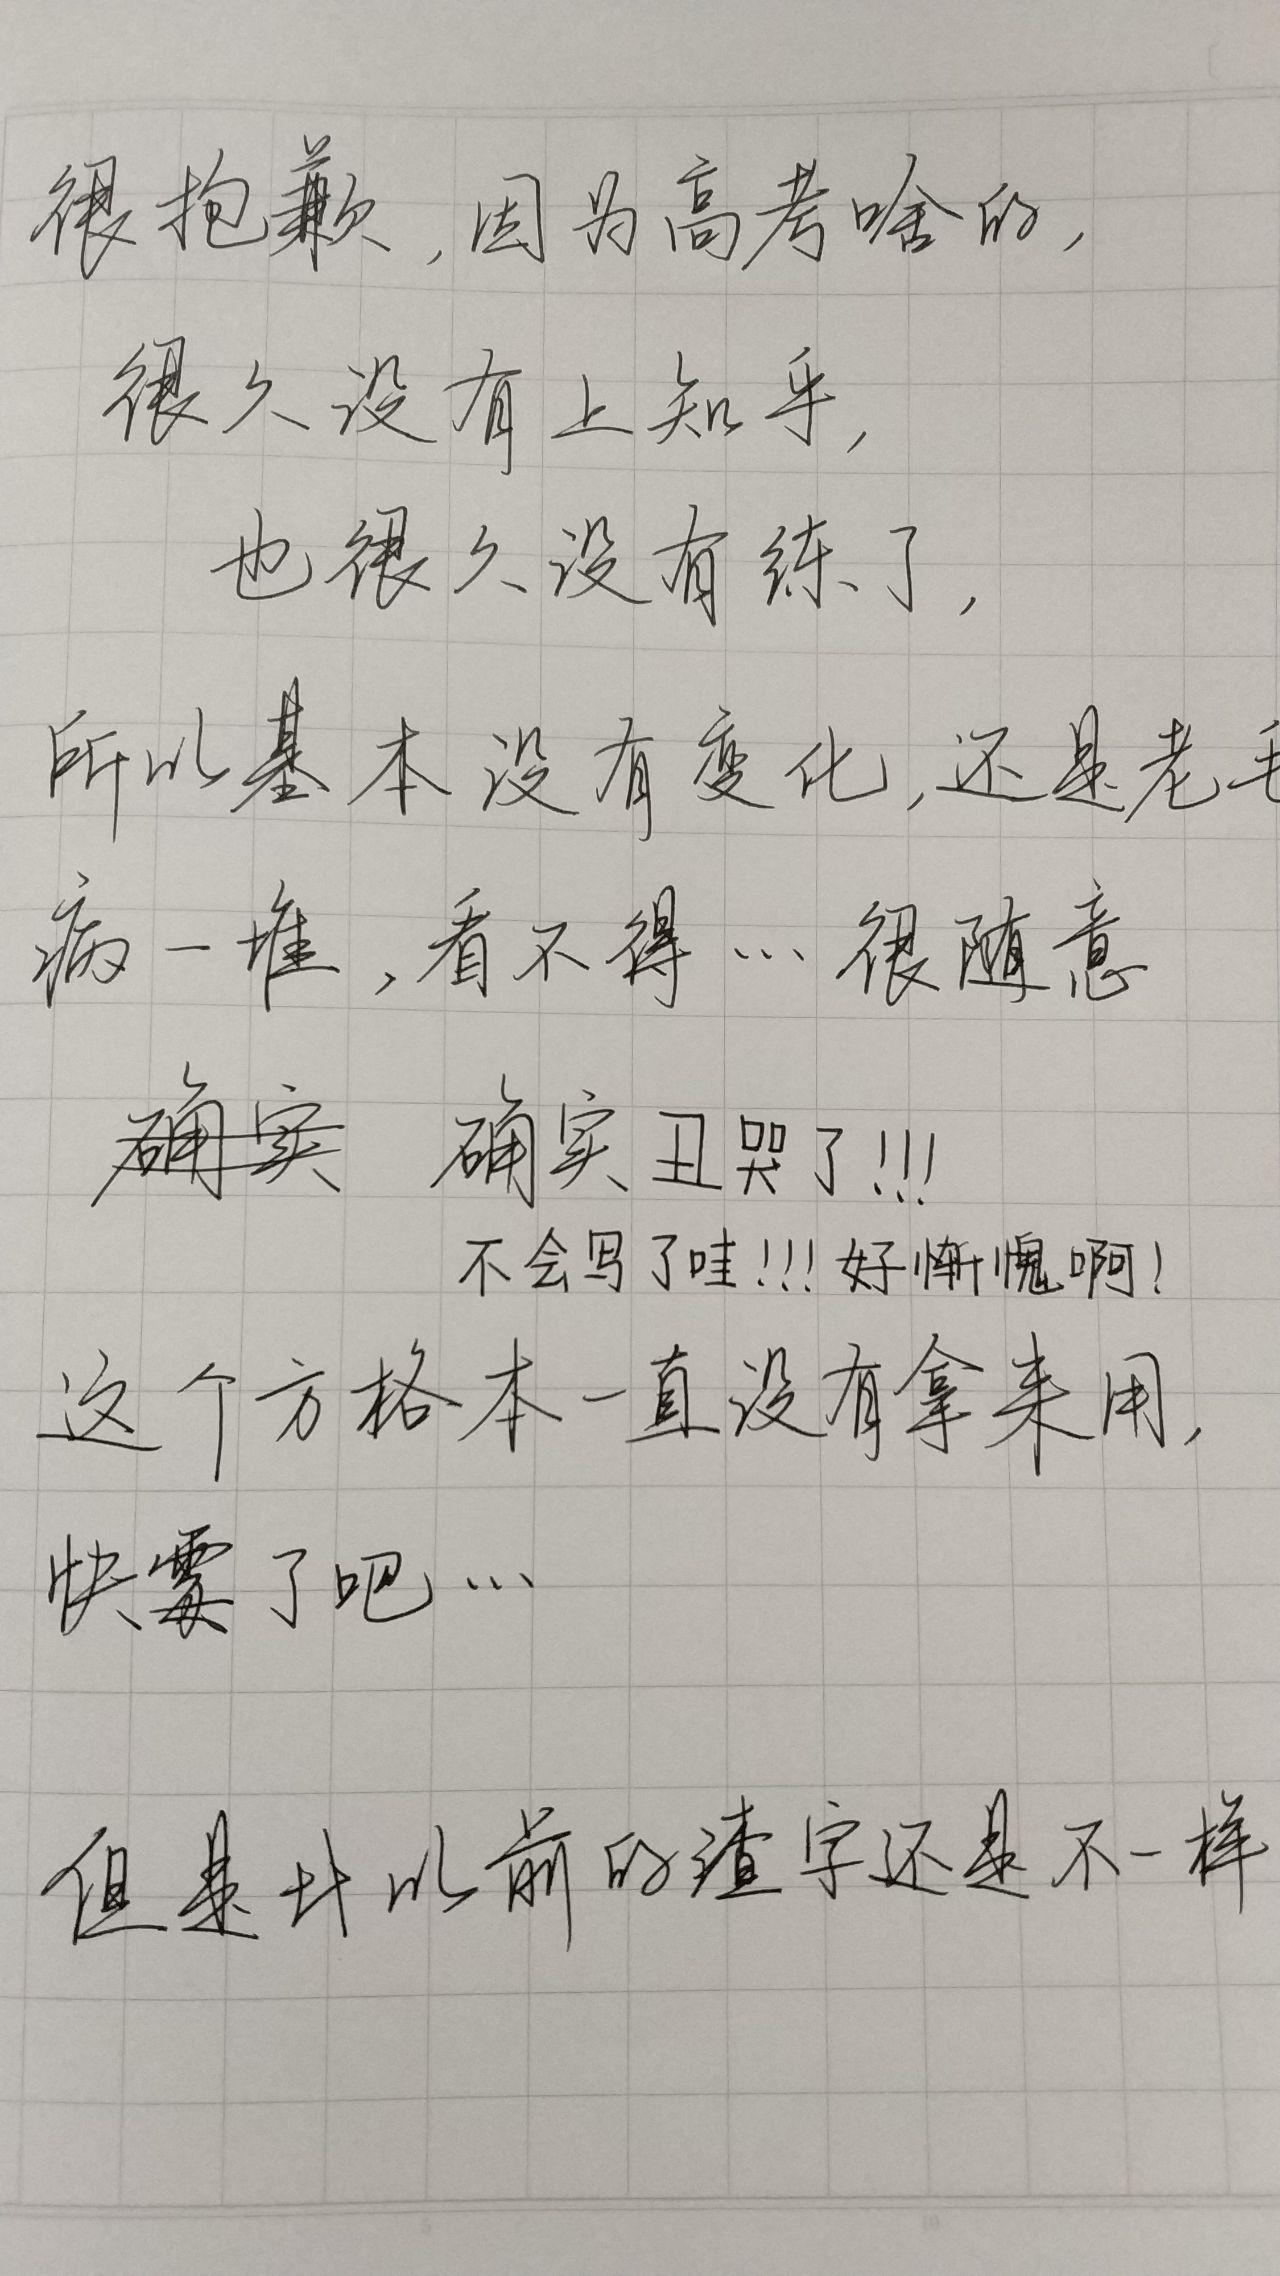 很抱歉，因为高考啥的，
很久没有上知乎，
也很久没有练了，
所以基本没有变化，还是老毛
病一堆，看不得…很随意
确实 确实丑哭了!!!
不会写了哇!!!好惭愧啊!
这个方格本一直没有拿来用，
快霉了吧…
但是比以前的渣字还是不一样